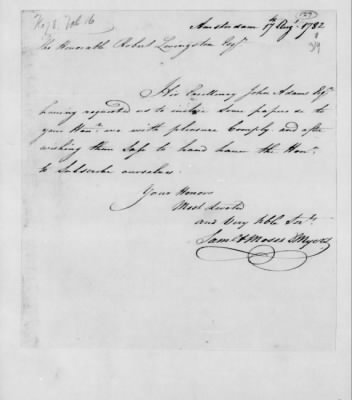 No. 8. Vol. 16
Amsterdam 17th Augt. 1782
The Honorable Robert Livingston Esqr.
His Excellency John Adams Esqr.
having requested us to inclose some papers to
your Honr. we with pleasure Comply and after
wishing them safe to hand have the Honr.
to Subscribe ourselves
Your Honors
Most devoted
and Very Hble Servts.
Saml. & Moses Myers